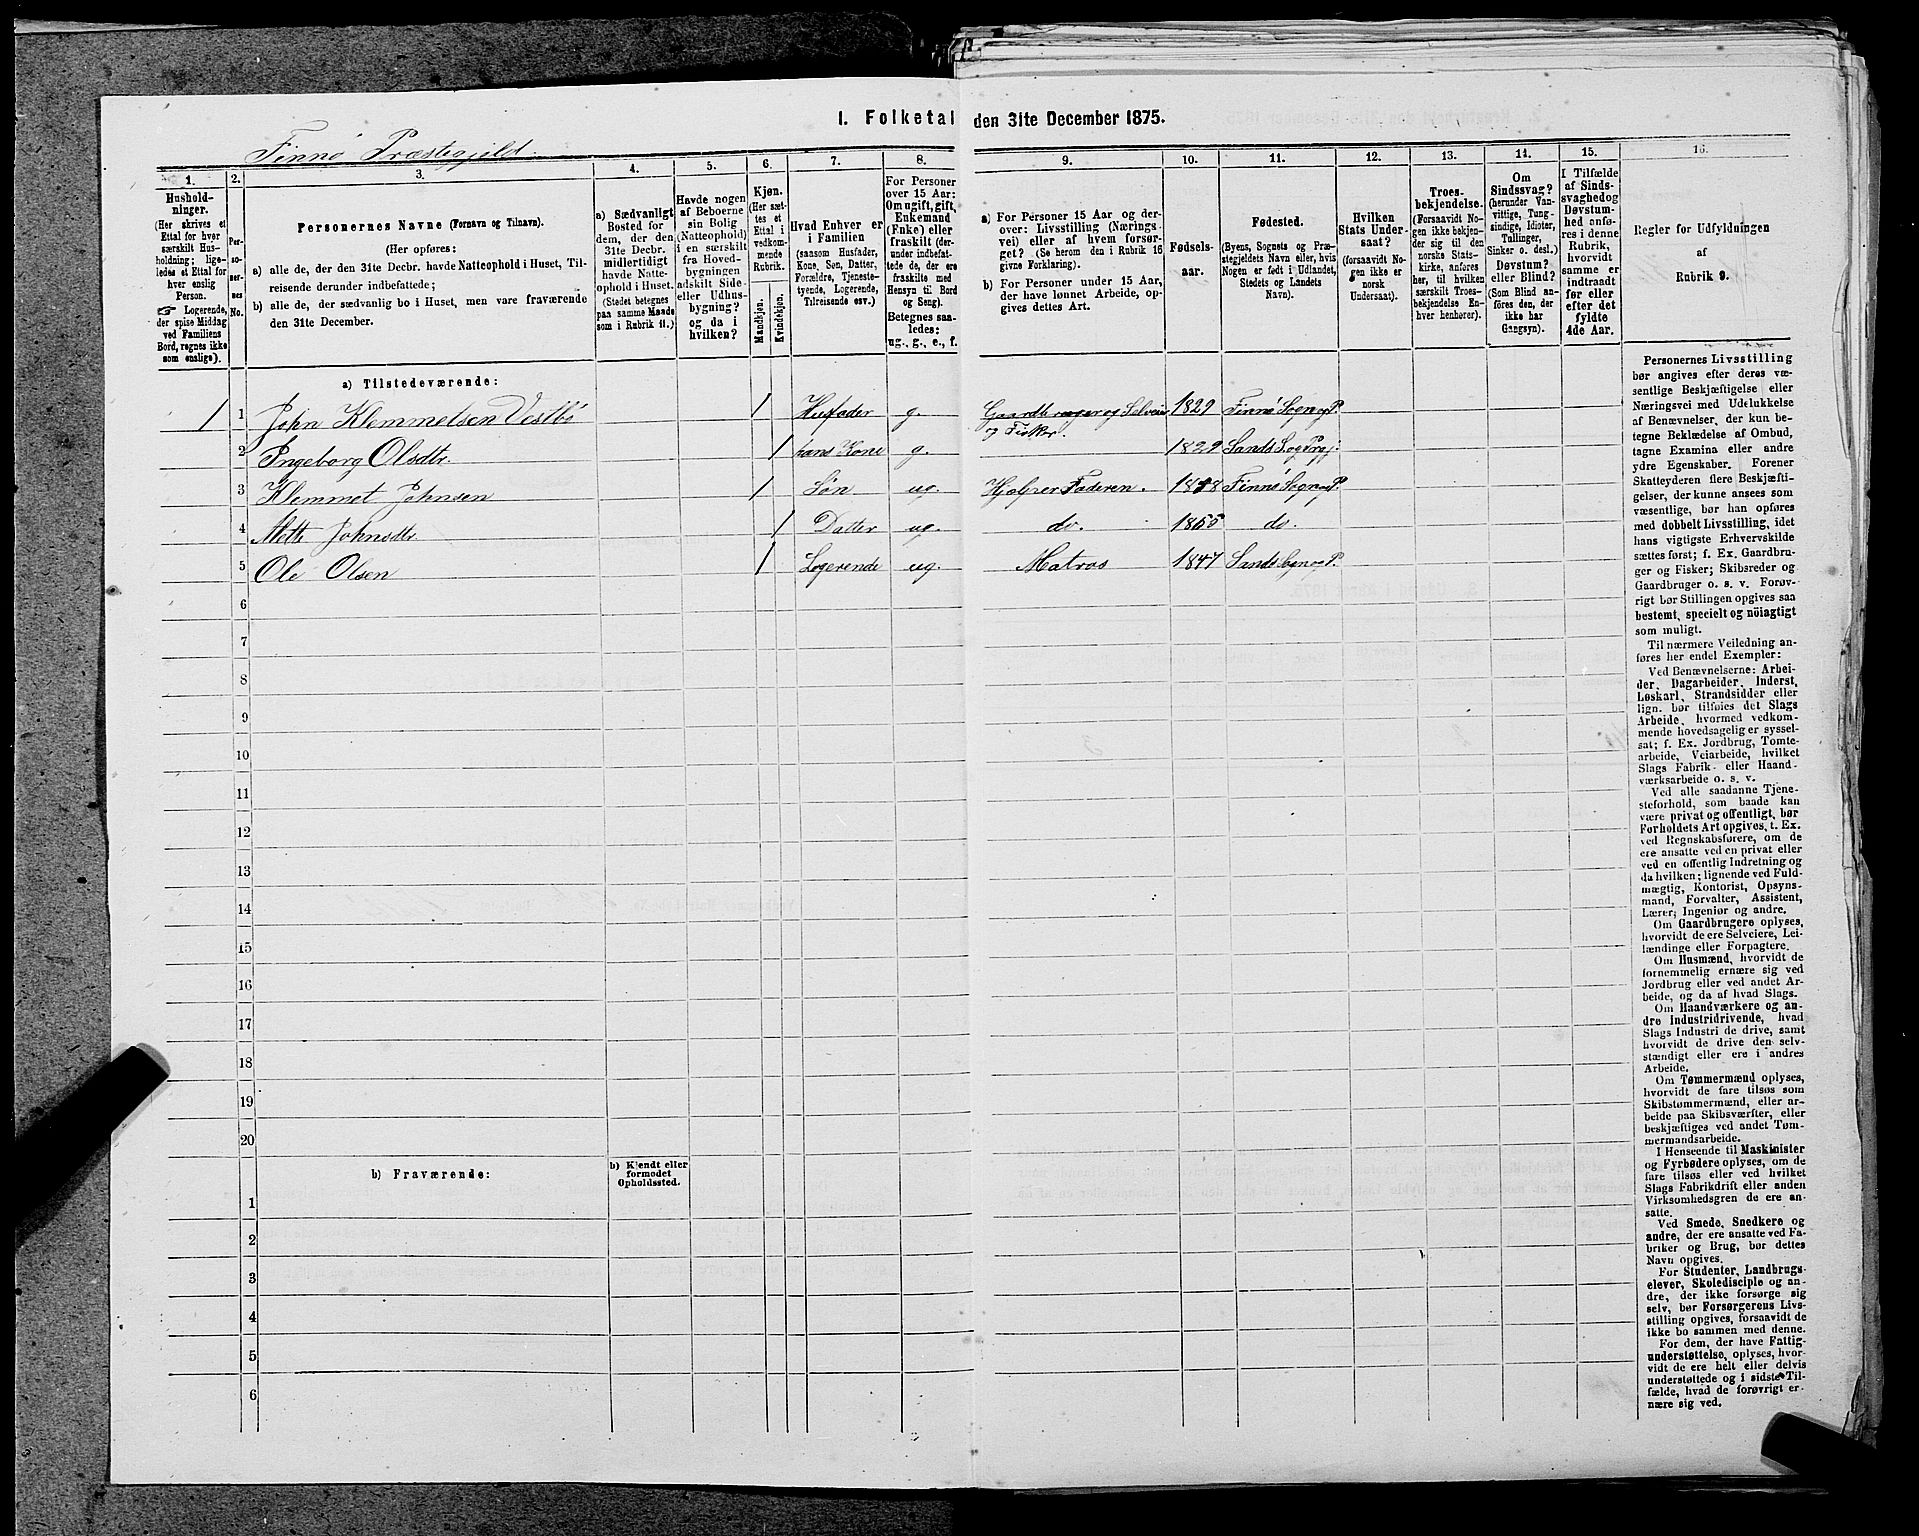 I. Folketal den 31te December 1875.
Finnø Præstegjeld.
1. 2. 3. 4. 5. 6. 7. 8. 9. 10. 11. 12. 13. 14. 15. 16.
Hushold-
ninger.
(Her skrives et
Ettal for hver
særskilt Hus-
holdning; lige-
ledes et Ettal for
hver enslig
Person.
☞ Logerende,
der spise Middag
ved Familiens
Bord, regnes ikke
som enslige).
Per-
so-
ner-
nes
No.
Personernes Navne (Fornavn og Tilnavn).
(Her opføres:
a) alle de, der den 31te Decbr. havde Natteophold i Huset, Til-
reisende derunder indbefattede;
b) alle de, der sædvanlig bo i Huset, men vare fraværende
den 31te December.
a) Sædvanligt
Bosted for
dem, der den
31te Decbr.
midlertidigt
havde Natte-
ophold i Huset.
(Stedet betegnes
paa samme Maade
som i Rubrik 11.)
Havde nogen
af Beboerne
sin Bolig
(Natteophold)
i en særskilt
fra Hoved-
bygningen
adskilt Side-
eller Udhus-
bygning?
og da i
hvilken?
Kjøn.
(Her sæt-
tes et
Ettal i
vedkom-
mende
Rubrik.
Mandkjøn.
Kvindekjøn.
Hvad Enhver er
i Familien
(saasom Husfader,
Kone, Søn, Datter,
Forældre, Tjeneste-
tyende, Logerende,
Tilreisende osv.)
For Personer
over 15 Aar:
Om ugift, gift,
Enkemand
(Enke) eller
fraskilt (der-
under indbefat-
tede de, der ere
fraskilte med
Hensyn til Bord
og Seng).
Betegnes saa-
ledes:
ug., g., e., f.
a) For Personer 15 Aar og der-
over: Livsstilling (Nærings-
vei) eller af hvem forsør-
get? (Se herom den i Rubrik 16
givne Forklaring).
b) For Personer under 15 Aar,
der have lønnet Arbeide, op-
gives dettes Art.
Fødsels-
aar.
Fødested.
(Byens, Sognets og Præ-
stegjeldets Navn eller, hvis
Nogen er født i Udlandet,
Stedets og Landets
Navn).
Hvilken
Stats Under-
saat?
(forsaavidt No-
gen ikke er
norsk
Undersaat).
Troes-
bekjendelse.
(Forsaavidt No-
gen ikke bekjen-
der sig til den
norske Stats-
kirke, anføres
her, til hvilken
særskilt Troes-
bekjendelse En-
hver henhører).
Om
Sindssvag?
(herunder Van-
vittige, Tung-
sindige, Idioter,
Tullinger,
Sinker o. desl.)
Døvstum?
eller Blind?
(Som Blind an-
føres den, der
ikke har
Gangsyn).
I Tilfælde
af Sinds-
svaghed og
Døvstum-
hed anfø-
res i denne
Rubrik,
hvorvidt
samme er
indtraadt
før eller
efter det
fyldte
4de Aar.
Regler for Udfyldningen
af
Rubrik 9.
a) Tilstedeværende:
1 1 John Klemmetsen Vestbø 1 Husfader g. Gaardbruger og Selveier 1829 Finnø Sogn og P.
og Fisker.
2 Ingeborg Olsdtr. 1 hans Kone g. 1829 Sands Sog Prgj:
3 Klemmet Johnsen 1 Søn ug. Hjælper Faderen. Finnø Sogn og P.
4 Mette Johnsdtr. 1 Datter ug. do. do.
5 Ole Olsen 1 Logerende ug. Matros 1847 Sands Sogn og P.
6
7
8
9
10
11
12
13
14
15
16
17
18
19
20
b) Fraværende: b) Kjendt eller
formodet
Opholdssted.
1
2
3
4
5
6
Personernes Livsstilling
bør angives efter deres væ-
sentlige Beskjæftigelse eller
Næringsvei med Udelukkelse
af Benævnelser, der kun be-
tegne Beklædelse af Ombud,
tagne Examina eller andre
ydre Egenskaber. Forener
Skatteyderen flere Beskjæfti-
gelser, der kunne ansees som
væsentlige, bør han opgives
med dobbelt Livsstilling, idet
hans vigtigste Erhvervskilde
sættes først; f. Ex. Gaardbru-
ger og Fisker; Skibsreder og
Gaardbruger o. s. v. Forøv-
rigt bør Stillingen opgives saa
bestemt, specielt og nöiagtigt
som muligt.
Til nærmere Veiledning an-
føres her endel Exempler:
Ved Benævnelserne: Arbei-
der, Dagarbeider, Inderst,
Løskarl, Strandsidder eller
lign. bør tilføies det Slags
Arbeide, hvormed vedkom-
mende hovedsagelig er syssel-
sat; f. Ex. Jordbrug, Tomte-
arbeide, Veiarbeide, hvilket
Slags Fabrik- eller Haand-
værksarbeide o. s. v.
Ved alle saadanne Tjene-
steforhold, som baade kan
være privat og offentligt, bør
Forholdets Art opgives, t. Ex.
ved Regnskabsførere, om de
ere ansatte ved en privat eller
ved en offentlig Indretning og
da hvilken; lignende ved Fuld-
mægtig, Kontorist, Opsyns-
mand, Forvalter, Assistent,
Lærer, Ingeniør og andre.
Om Gaardbrugere oplyses,
hvorvidt de ere Selveiere, Lei-
lændinge eller Forpagtere.
Om Husmænd, hvorvidt de
fornemmelig ernære sig ved
Jordbrug eller ved andet Ar-
beide, og da af hvad Slags.
Om Haandværkere og an-
dre Industridrivende, hvad
Slags Industri de drive, samt
hvorvidt de drive den selv-
stændigt eller ere i andres
Arbeide.
Om Tømmermænd oplyses,
hvorvidt de fare tilsøs som
Skibstømmermænd, eller ar-
beide paa Skibsværfter, eller
beskjæftiges ved andet Tøm-
mermandsarbeide.
I Henseende til Maskinister
og Fyrbødere oplyses, om de
fare tilsøs eller ved hvilket
Slags Fabrikdrift eller anden
Virksomhedsgren de ere an-
satte.
Ved Smede, Snedkere og
andre, der ere ansatte ved Fa-
briker og Brug, bør dettes
Navn opgives.
For Studenter, Landbrugs-
elever, Skoledisciple og an-
dre, der ikke forsørge sig
selv, bør Forsørgerens Livs-
stilling opgives, forsaavidt de
ikke bo sammen med denne.
For dem, der have Fattig-
understøttelse, oplyses, hvor-
vidt de ere helt eller delvis
understøttede og i sidste Til-
fælde, hvad de forøvrigt er-
nære sig ved.